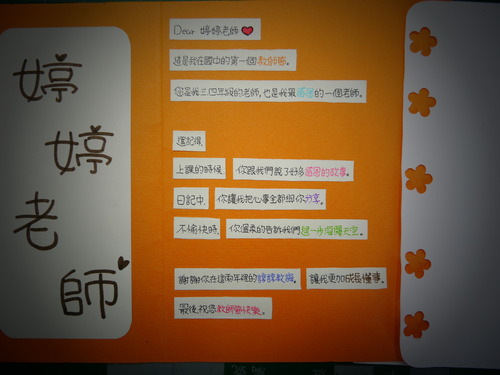 婷
婷
老
師
Dear 婷婷老師
這是我在國中的第一個教師節。
您是我三.四年級的老師,也是我最感恩的一個老師。
還記得,
上課的時候, 你跟我們說了好多感恩的故事。
日記中, 你讓我把心事全都與你分享。
不愉快時, 你溫柔的告訴我們退一步海闊天空。
謝謝你在這兩年裡的諄諄教誨, 讓我更加成長懂事。
最後,祝您教師節快樂。